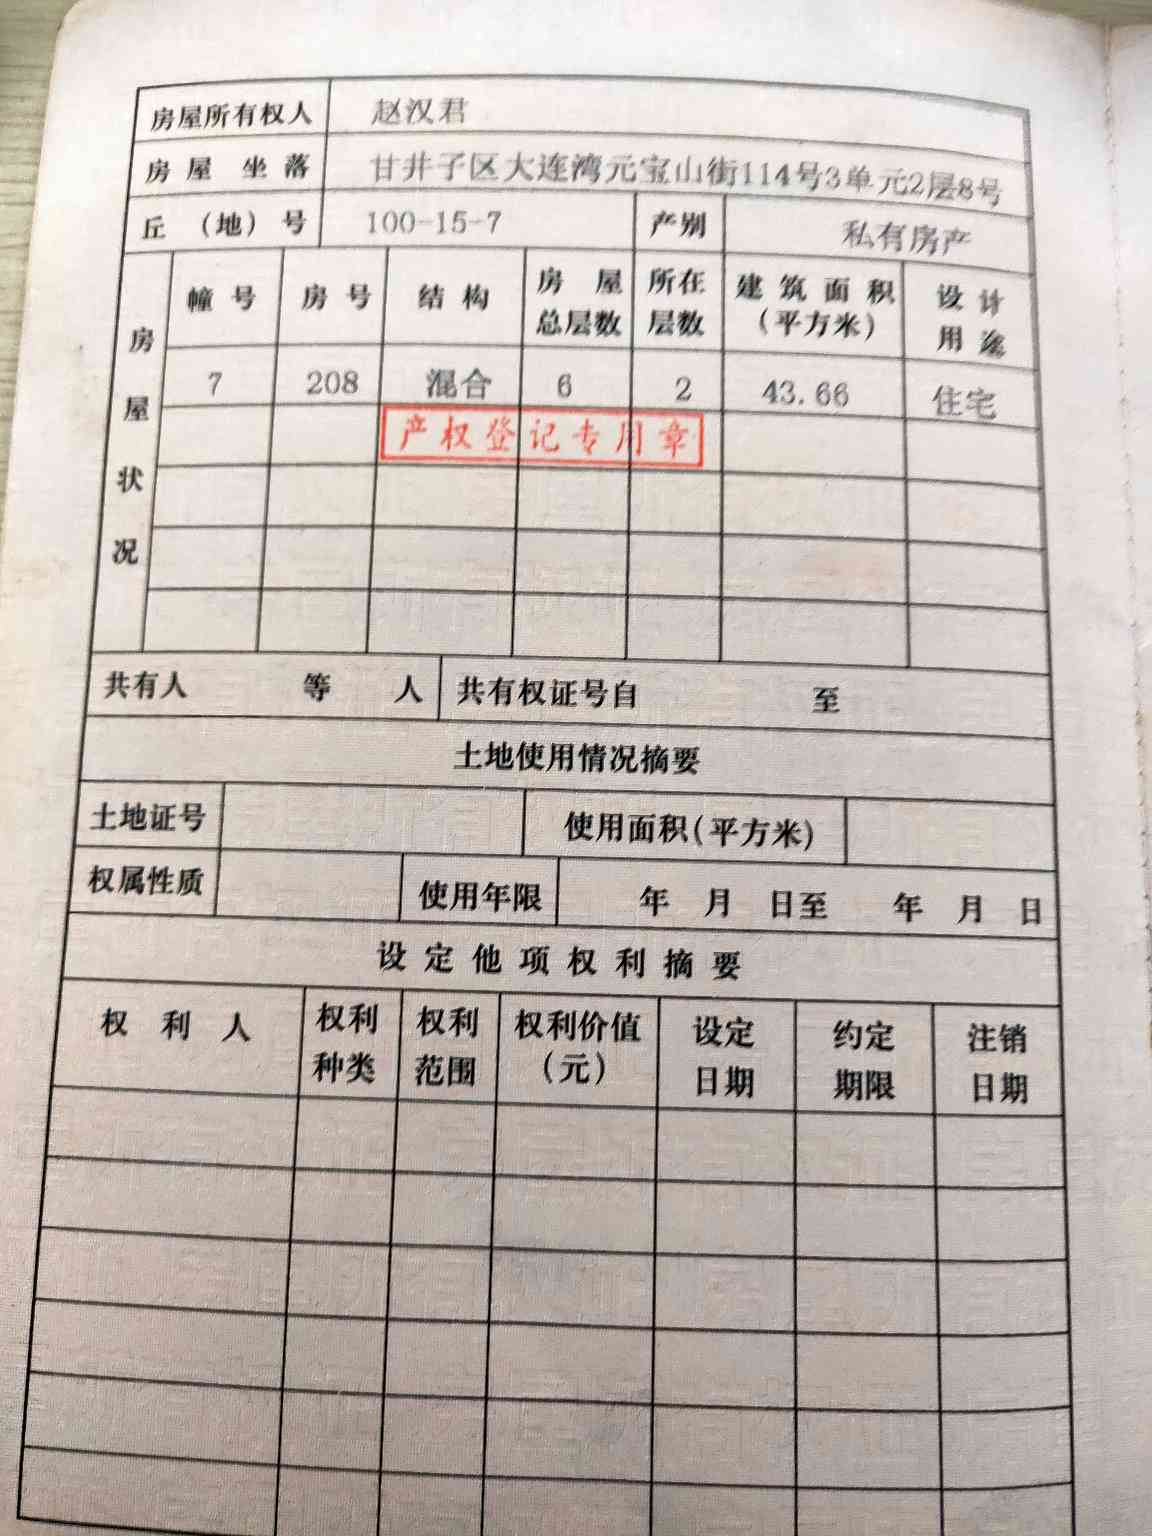 房屋所有权人 赵汉君
房屋坐落 甘井子区大连湾元宝山街114号3单元2层8号
丘（地）号 100-15-7 产别 私有房产
房屋状况
幢号 房号 结构 房屋总层数 所在层数 建筑面积（平方米） 设计用途
7 208 混合 6 2 43.66 住宅
产权登记专用章
共有人 等 人 共有权证号自 至
土地使用情况摘要
土地证号 使用面积(平方米)
权属性质 使用年限 年 月 日至 年 月 日
设定他项权利摘要
权利人 权利种类 权利范围 权利价值（元） 设定日期 约定期限 注销日期